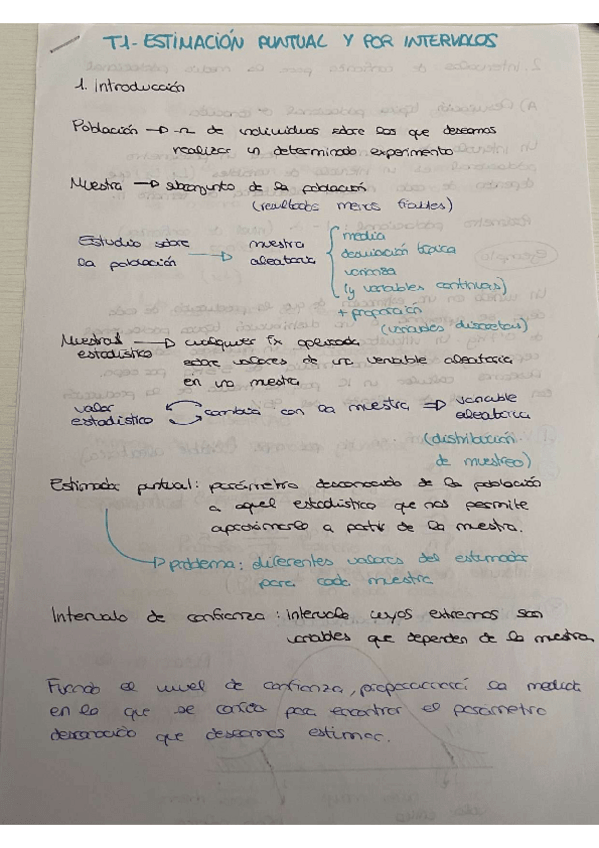 T.1- ESTIMACIÓN PUNTUAL Y POR INTERVALOS
1. Introducción
Población → n de individuos sobre los que deseamos
realizar un determinado experimento
Muestra → subconjunto de la población
(resultados menos fiables)
Estudio sobre la población → muestra aleatoria { media
desviación típica
varianza
(y variables continuas)
+ proporción
(variables discretas)
Muestral estadístico → cualquier fx operada
sobre valores de una variable aleatoria
en una muestra
valor estadístico cambia con la muestra ⇒ variable aleatoria
(distribución
de muestreo)
Estimador puntual: parámetro desconocido de la población
a aquel estadístico que nos permite
aproximarlo a partir de la muestra.
→ problema: diferentes valores del estimador
para cada muestra
Intervalo de confianza: intervalo cuyos extremos son
variables que dependen de la muestra
Fijando el nivel de confianza, proporcionará la medida
en la que se confía para encontrar el parámetro
desconocido que deseamos estimar.